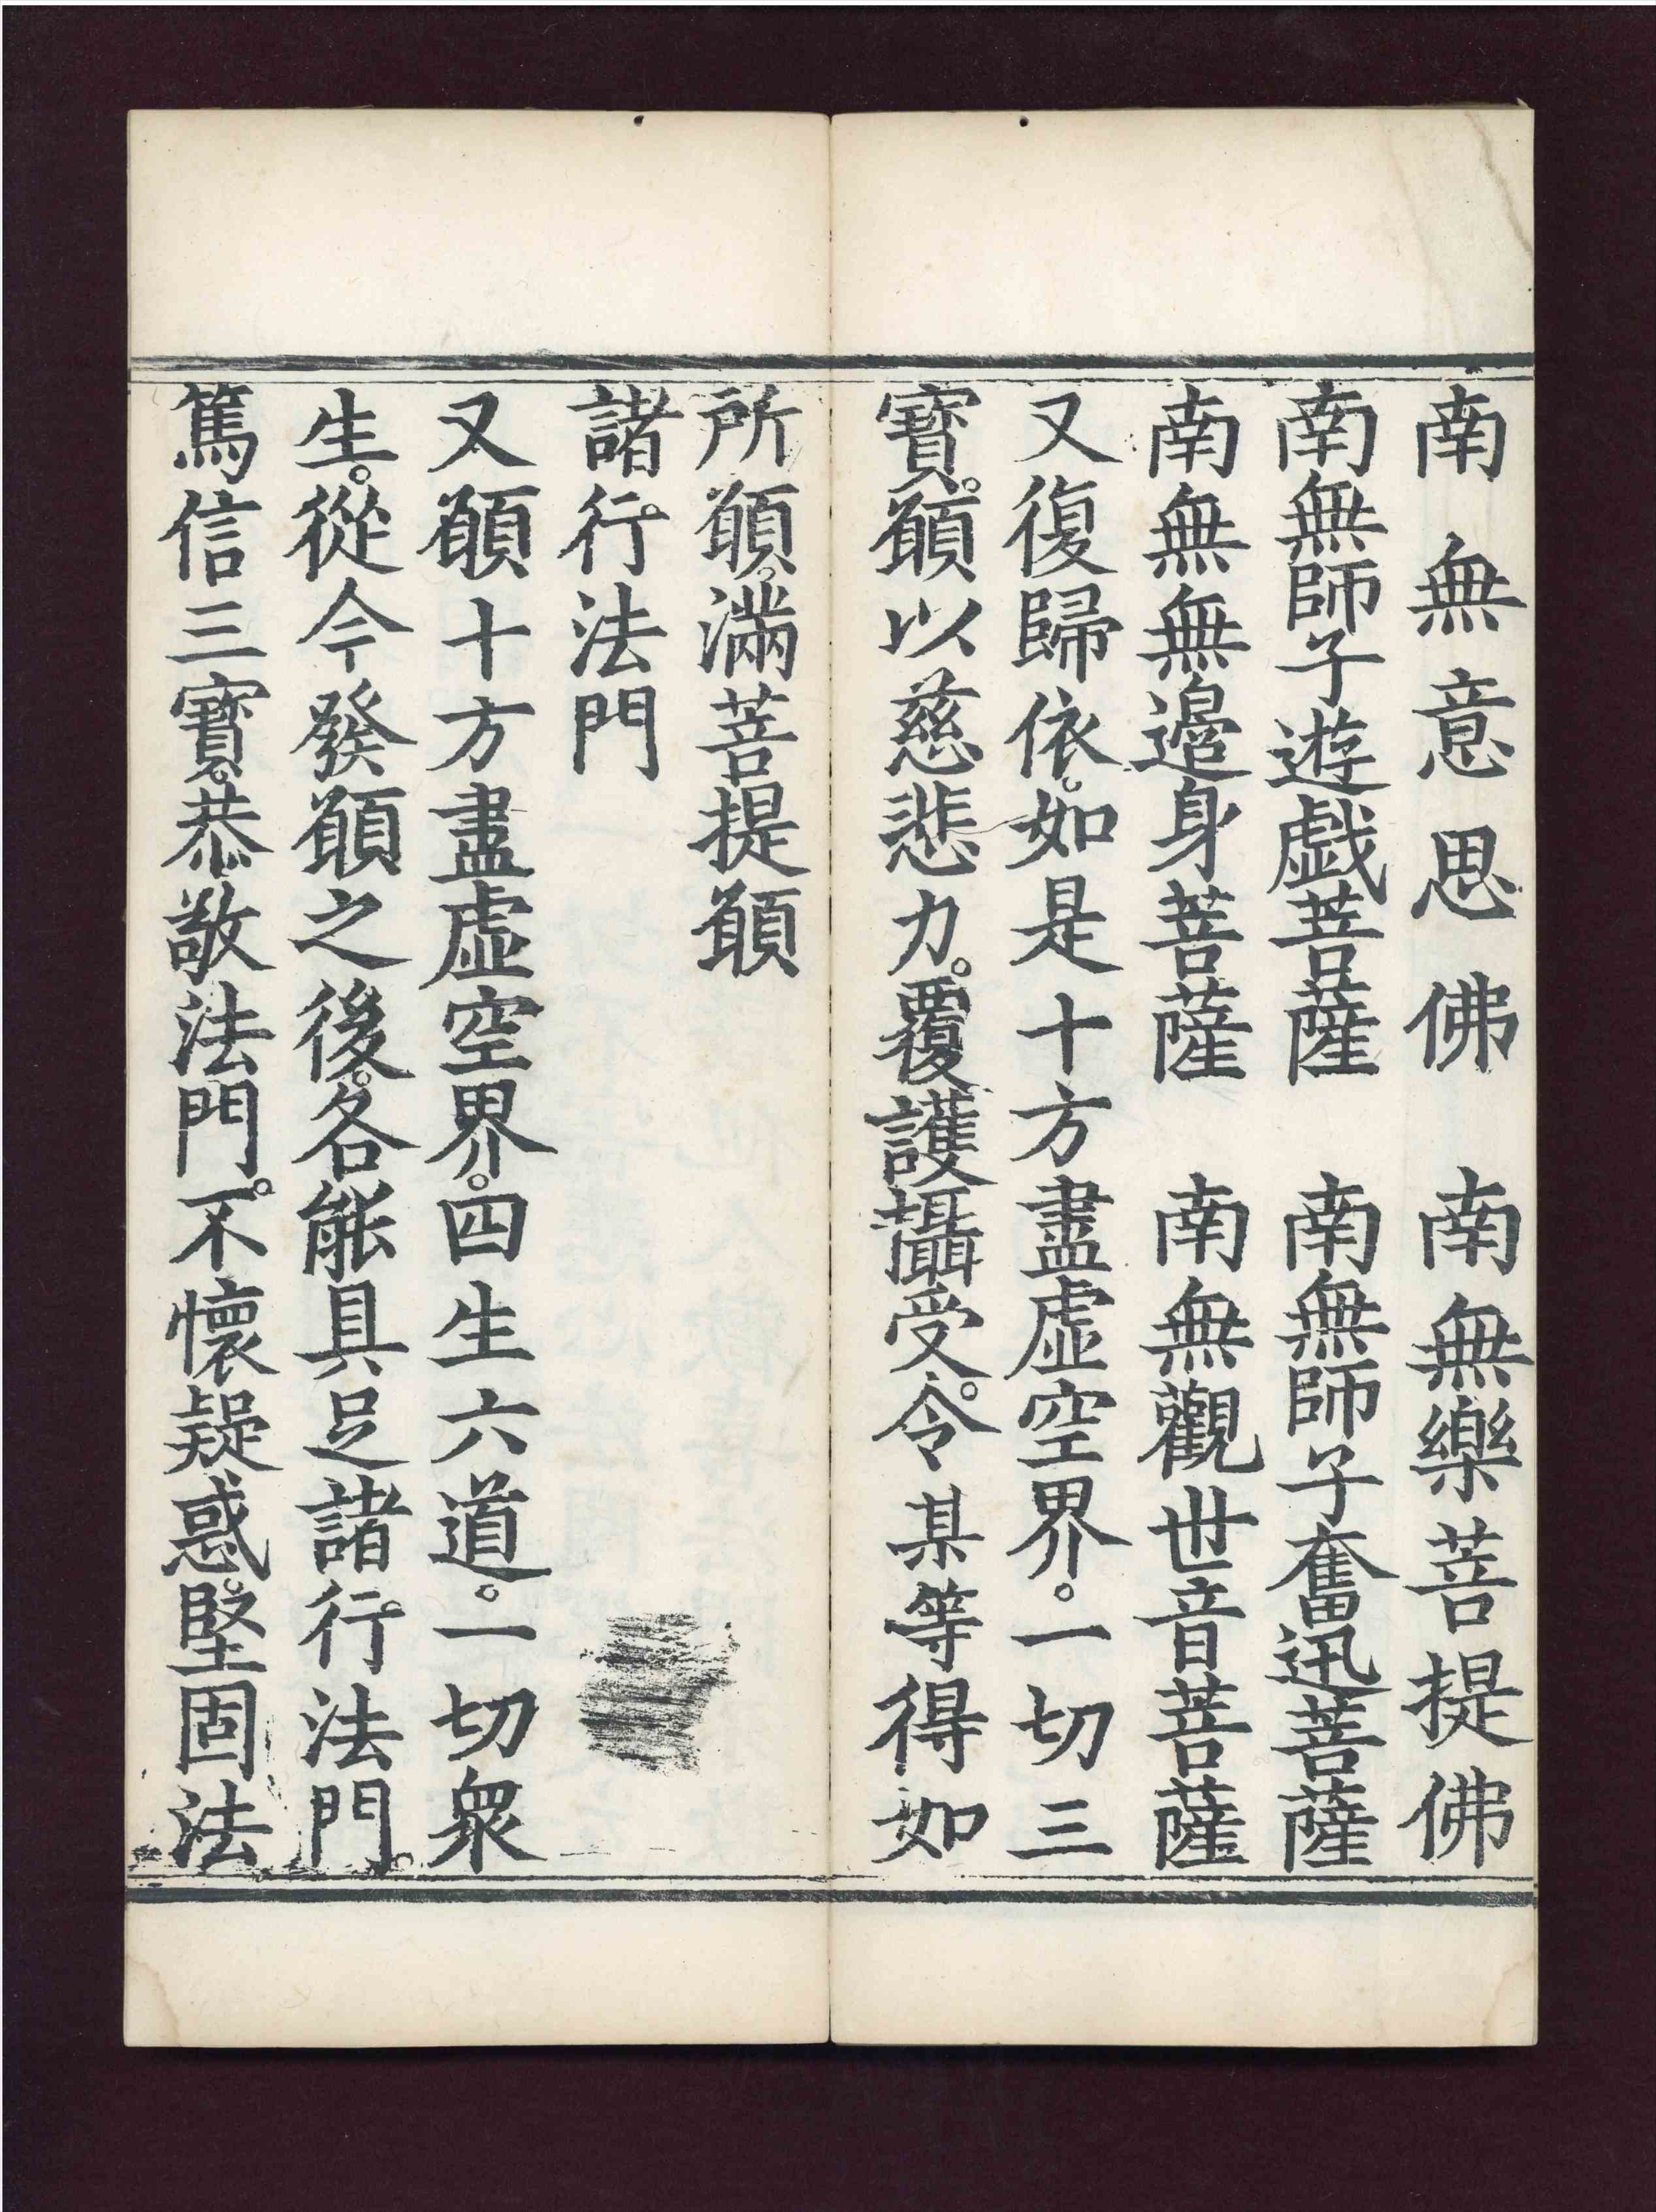 南無意思佛　南無樂菩提佛
南無師子遊戲菩薩　南無師子奮迅菩薩
南無無邊身菩薩　南無觀世音菩薩
又復歸依。如是十方盡虛空界。一切三
寶。願以慈悲力。覆護攝受。令某等得如
所願。滿菩提願
諸行法門
又願十方盡虛空界。四生六道。一切衆
生。從今發願之後。各能具足諸行法門。
篤信三寶。恭敬法門。不懷疑惑。堅固法